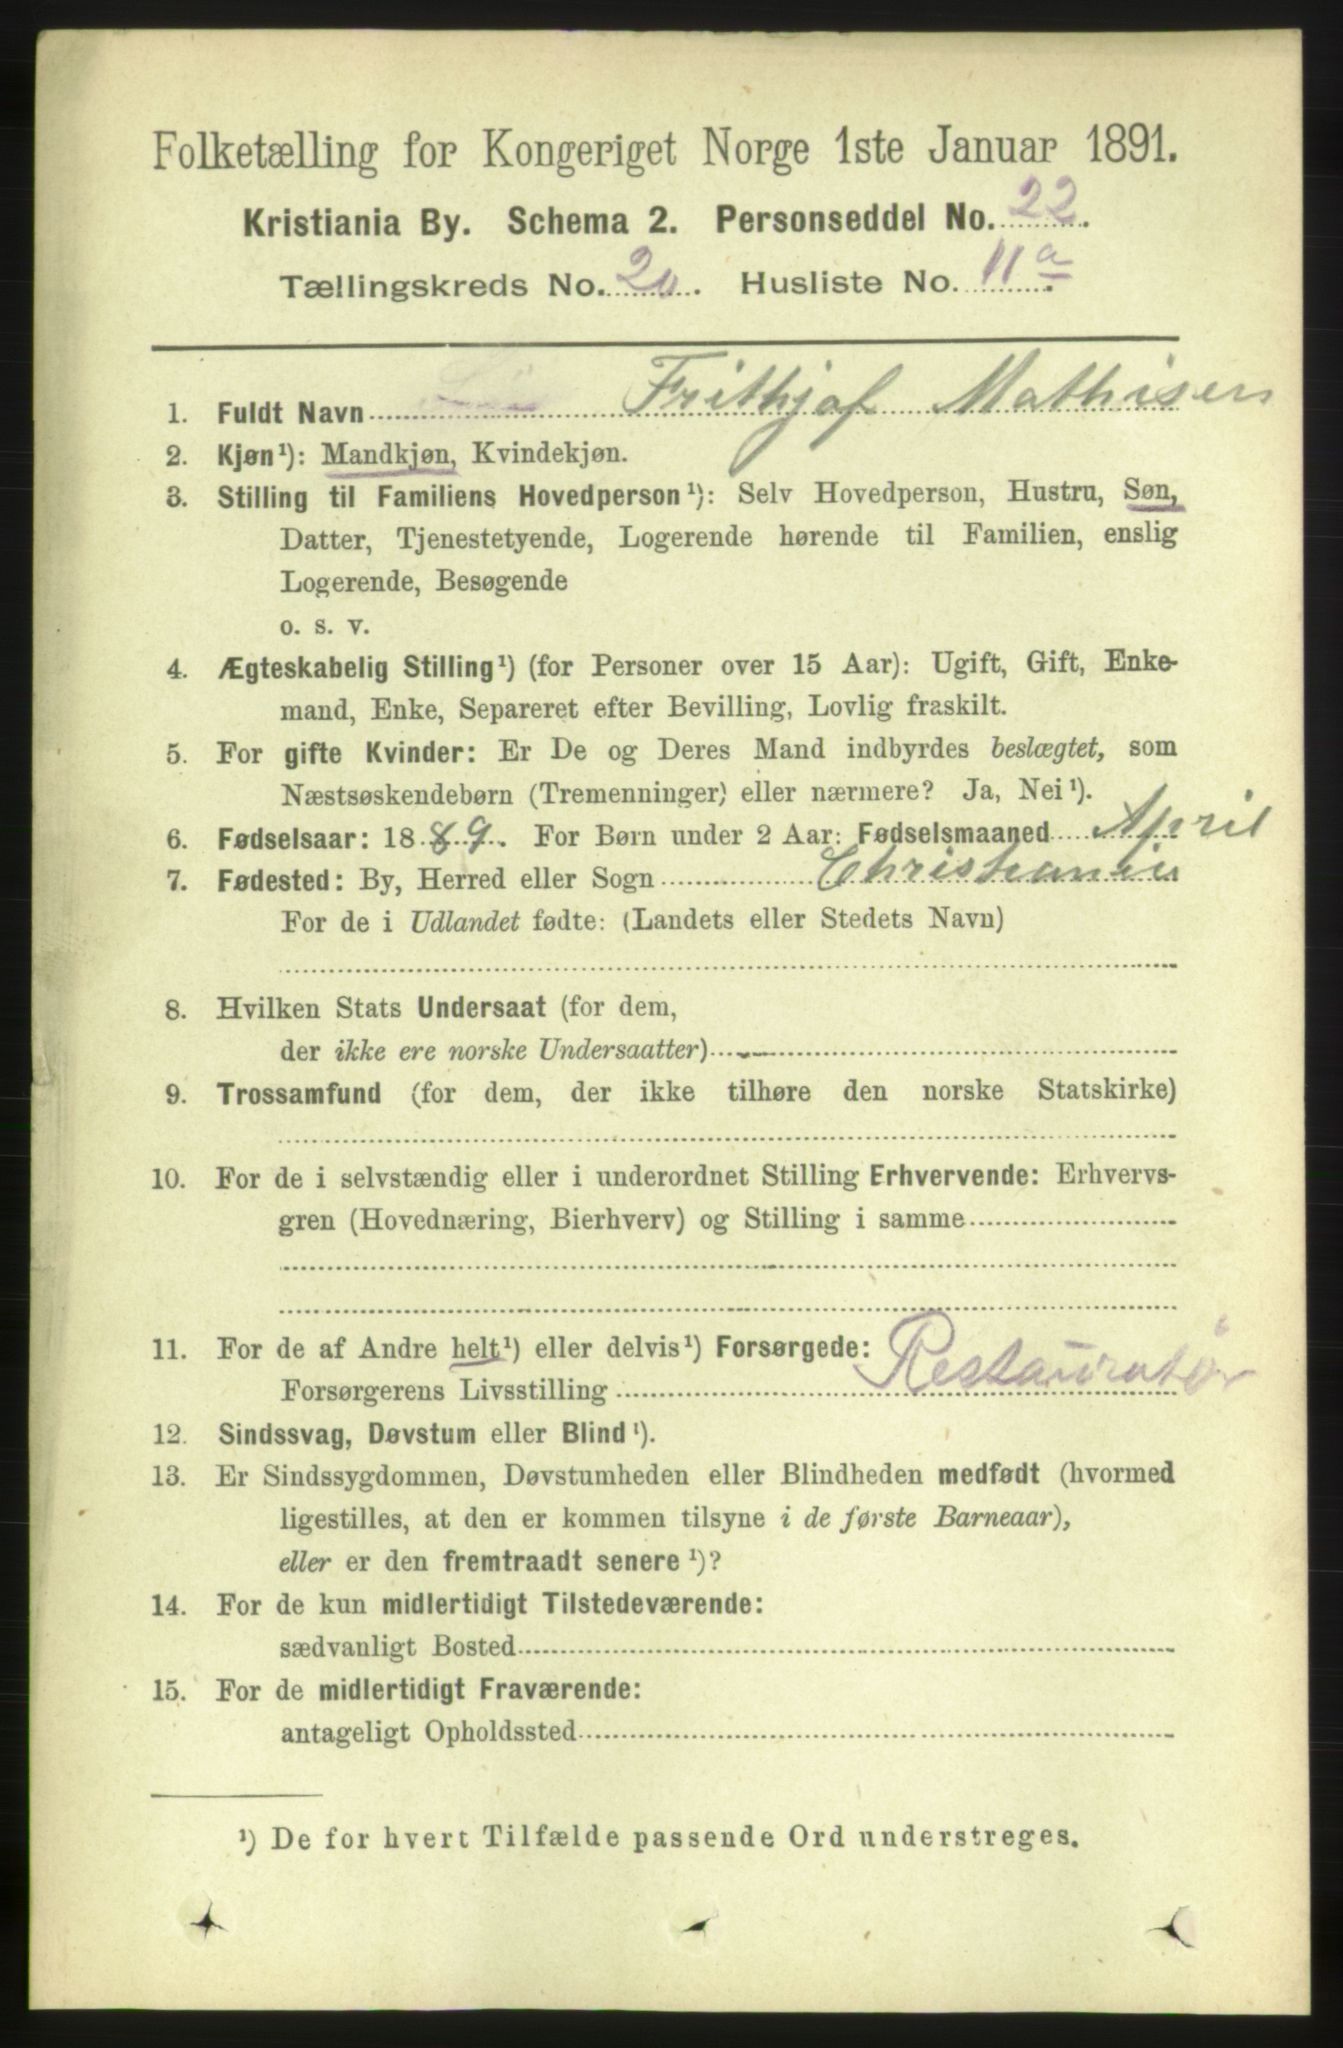 Folketælling for Kongeriget Norge 1ste Januar 1891.
Kristiania By. Schema 2. Personseddel No. 22.
Tællingskreds No. 20. Husliste No. 11a.
1. Fuldt Navn Frithjof Mathisen
2. Kjøn¹): Mandkjøn, Kvindekjøn.
3. Stilling til Familiens Hovedperson¹): Selv Hovedperson, Hustru, Søn,
Datter, Tjenestetyende, Logerende hørende til Familien, enslig
Logerende, Besøgende
o. s. v.
4. Ægteskabelig Stilling¹) (for Personer over 15 Aar): Ugift, Gift, Enke-
mand, Enke, Separeret efter Bevilling, Lovlig fraskilt.
5. For gifte Kvinder: Er De og Deres Mand indbyrdes beslægtet, som
Næstsøskendebørn (Tremenninger) eller nærmere? Ja, Nei¹).
6. Fødselsaar: 1889. For Børn under 2 Aar: Fødselsmaaned April
7. Fødested: By, Herred eller Sogn Christiania
For de i Udlandet fødte: (Landets eller Stedets Navn)
8. Hvilken Stats Undersaat (for dem,
der ikke ere norske Undersaatter)
9. Trossamfund (for dem, der ikke tilhøre den norske Statskirke)
10. For de i selvstændig eller i underordnet Stilling Erhvervende: Erhvervs-
gren (Hovednæring, Bierhverv) og Stilling i samme
11. For de af Andre helt¹) eller delvis¹) Forsørgede:
Forsørgerens Livsstilling Restauratør
12. Sindssvag, Døvstum eller Blind¹).
13. Er Sindssygdommen, Døvstumheden eller Blindheden medfødt (hvormed
ligestilles, at den er kommen tilsyne i de første Barneaar),
eller er den fremtraadt senere¹)?
14. For de kun midlertidigt Tilstedeværende:
sædvanligt Bosted
15. For de midlertidigt Fraværende:
antageligt Opholdssted
¹) De for hvert Tilfælde passende Ord understreges.